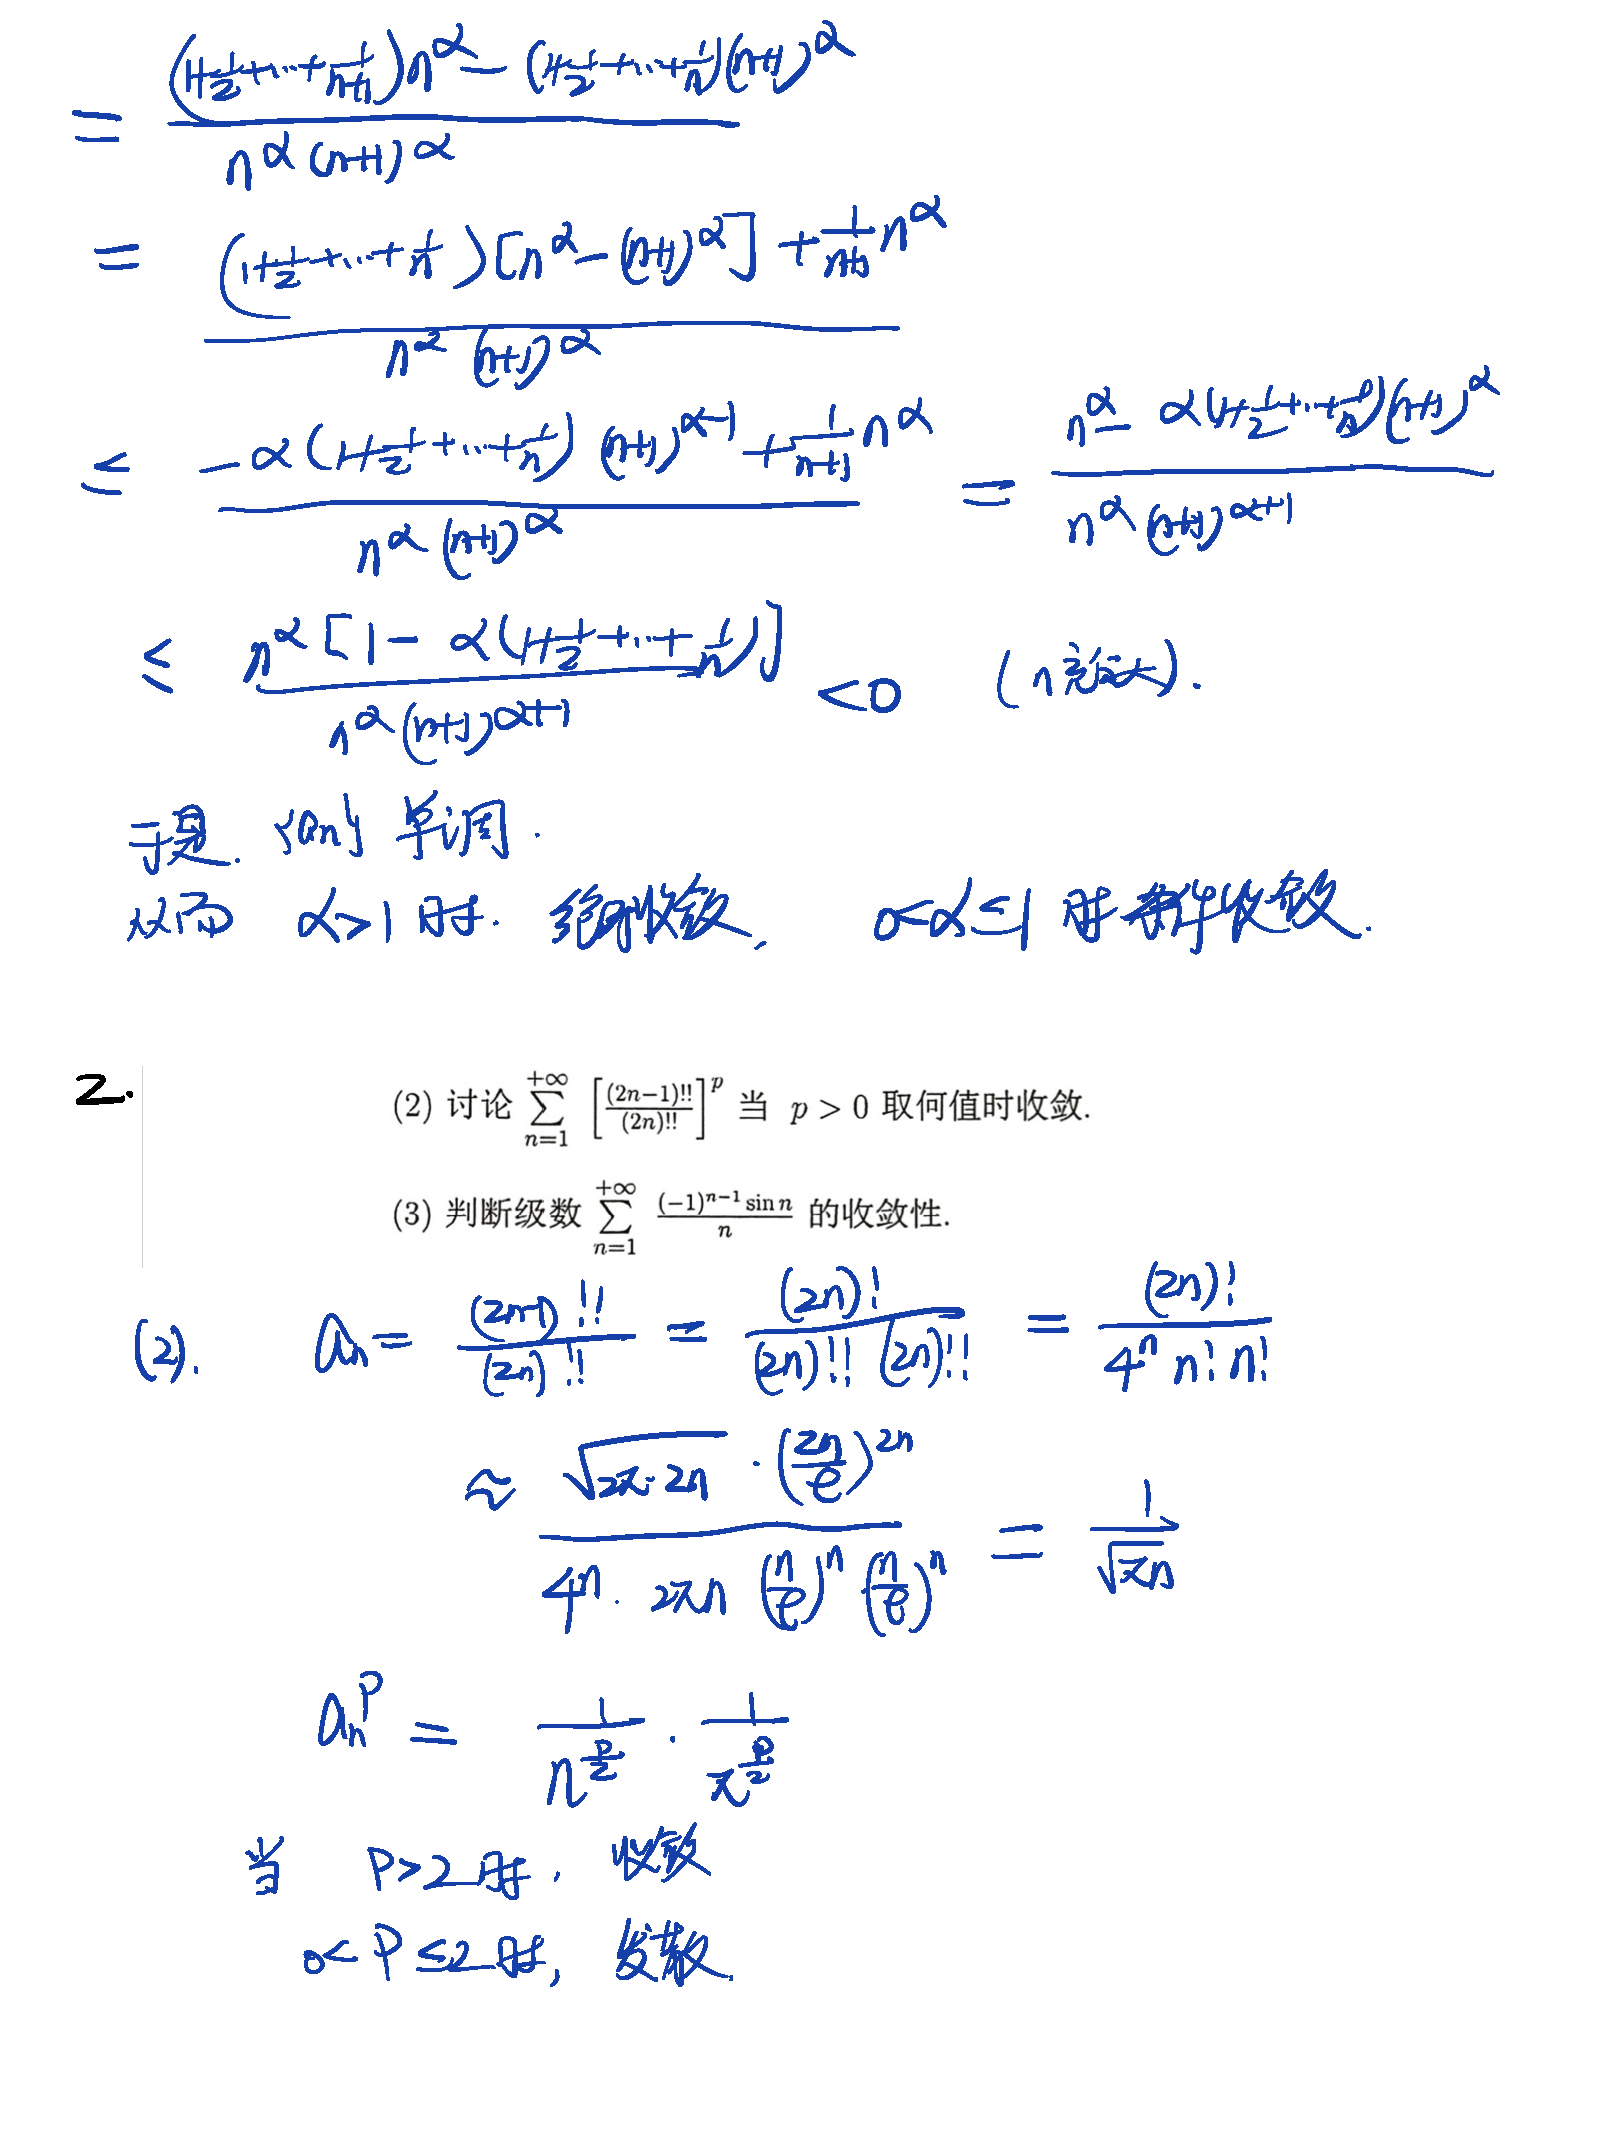 = \frac{(1+\frac{1}{2}+\cdots+\frac{1}{n+1})n^α - (1+\frac{1}{2}+\cdots+\frac{1}{n})(n+1)^α}{n^α (n+1)^α}
= \frac{(1+\frac{1}{2}+\cdots+\frac{1}{n})[n^α-(n+1)^α]+\frac{1}{n+1}n^α}{n^α (n+1)^α}
≤ \frac{-α(1+\frac{1}{2}+\cdots+\frac{1}{n})(n+1)^{α-1}+\frac{1}{n+1}n^α}{n^α (n+1)^α} = \frac{n^α - α(1+\frac{1}{2}+\cdots+\frac{1}{n})(n+1)^α}{n^α (n+1)^{α+1}}
≤ \frac{n^α[1-α(1+\frac{1}{2}+\cdots+\frac{1}{n})]}{n^α(n+1)^{α+1}} <0 (n充分大).
于是. {an} 单调.
从而 α>1 时. 绝对收敛, 0<α≤1 时条件收敛.
2.
(2) 讨论 \sum_{n=1}^{+∞} [\frac{(2n-1)!!}{(2n)!!}]^p 当 p > 0 取何值时收敛.
(3) 判断级数 \sum_{n=1}^{+∞} \frac{(-1)^{n-1} sin n}{n} 的收敛性.
(2). an = \frac{(2n-1)!!}{(2n)!!} = \frac{(2n)!}{(2n)!! (2n)!!} = \frac{(2n)!}{4^n n! n!}
≈ \frac{\sqrt{2π·2n} · (\frac{2n}{e})^{2n}}{4^n · 2πn (\frac{n}{e})^n (\frac{n}{e})^n} = \frac{1}{\sqrt{πn}}
an^p = \frac{1}{n^{\frac{p}{2}}} · \frac{1}{π^{\frac{p}{2}}}
当 P>2 时, 收敛
0<P≤2 时, 发散.